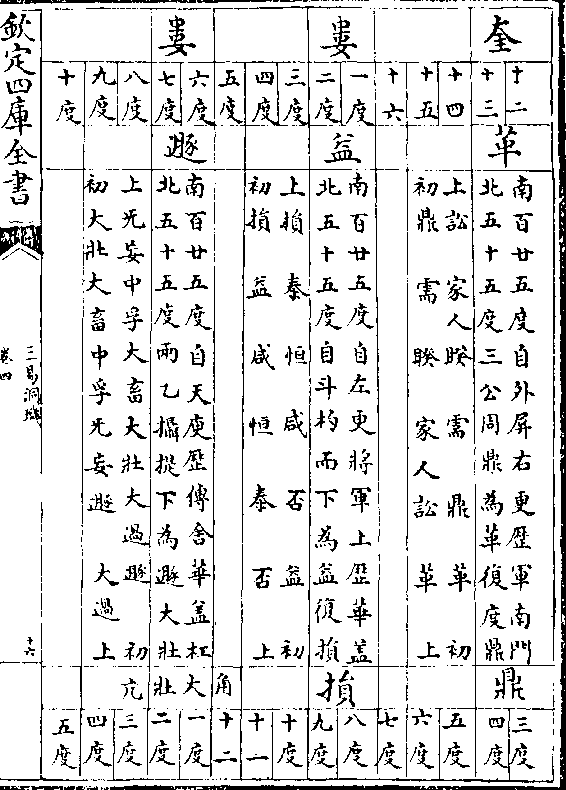 奎
婁
婁
十二
十三
十四
十五
十六
一度
二度
三度
四度
五度
六度
七度
八度
九度
十度
革
益
遯
南百廿五度自外屏右更歷軍南門
北五十五度三公周鼎為革復度鼎
上訟 家人睽 需 鼎 革 初
初鼎 需 睽 家人訟 革 上
南百廿五度自左更將軍上歷華蓋
北五十五度自斗杓而下為益復損
上損 泰 恒 咸 否 益 初
初損 益 咸 恒 泰 否 上
南百廿五度自天庾歷傳舍華蓋杠
北五十五度兩乙攝提下為遯大壯
上无妄中孚大畜大壯大過遯 初
初大壯大畜中孚无妄遯 大過 上
鼎
損
角
大
壯
亢
三度
四度
五度
六度
七度
八度
九度
十度
十一
十二
一度
二度
三度
四度
五度
欽定四庫全書
三易洞璣
卷四
十六